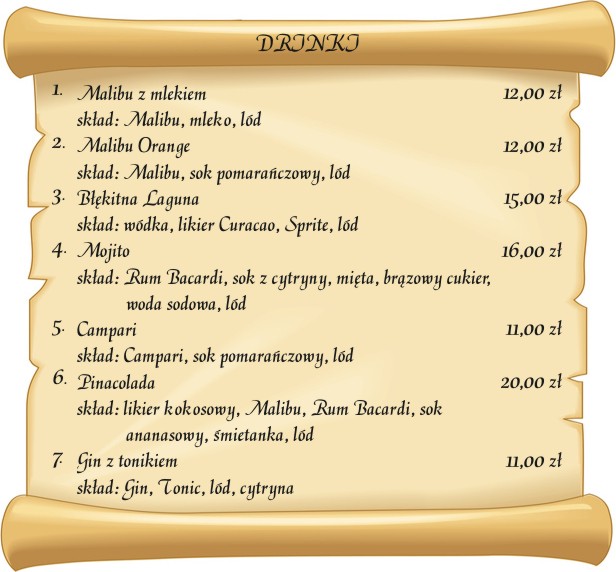 DRINKI
1. Malibu z mlekiem 12,00 zł
skład: Malibu, mleko, lód
2. Malibu Orange 12,00 zł
skład: Malibu, sok pomarańczowy, lód
3. Błękitna Laguna 15,00 zł
skład: wódka, likier Curacao, Sprite, lód
4. Mojito 16,00 zł
skład: Rum Bacardi, sok z cytryny, mięta, brązowy cukier,
woda sodowa, lód
5. Campari 11,00 zł
skład: Campari, sok pomarańczowy, lód
6. Pinacolada 20,00 zł
skład: likier kokosowy, Malibu, Rum Bacardi, sok
ananasowy, śmietanka, lód
7. Gin z tonikiem 11,00 zł
skład: Gin, Tonic, lód, cytryna